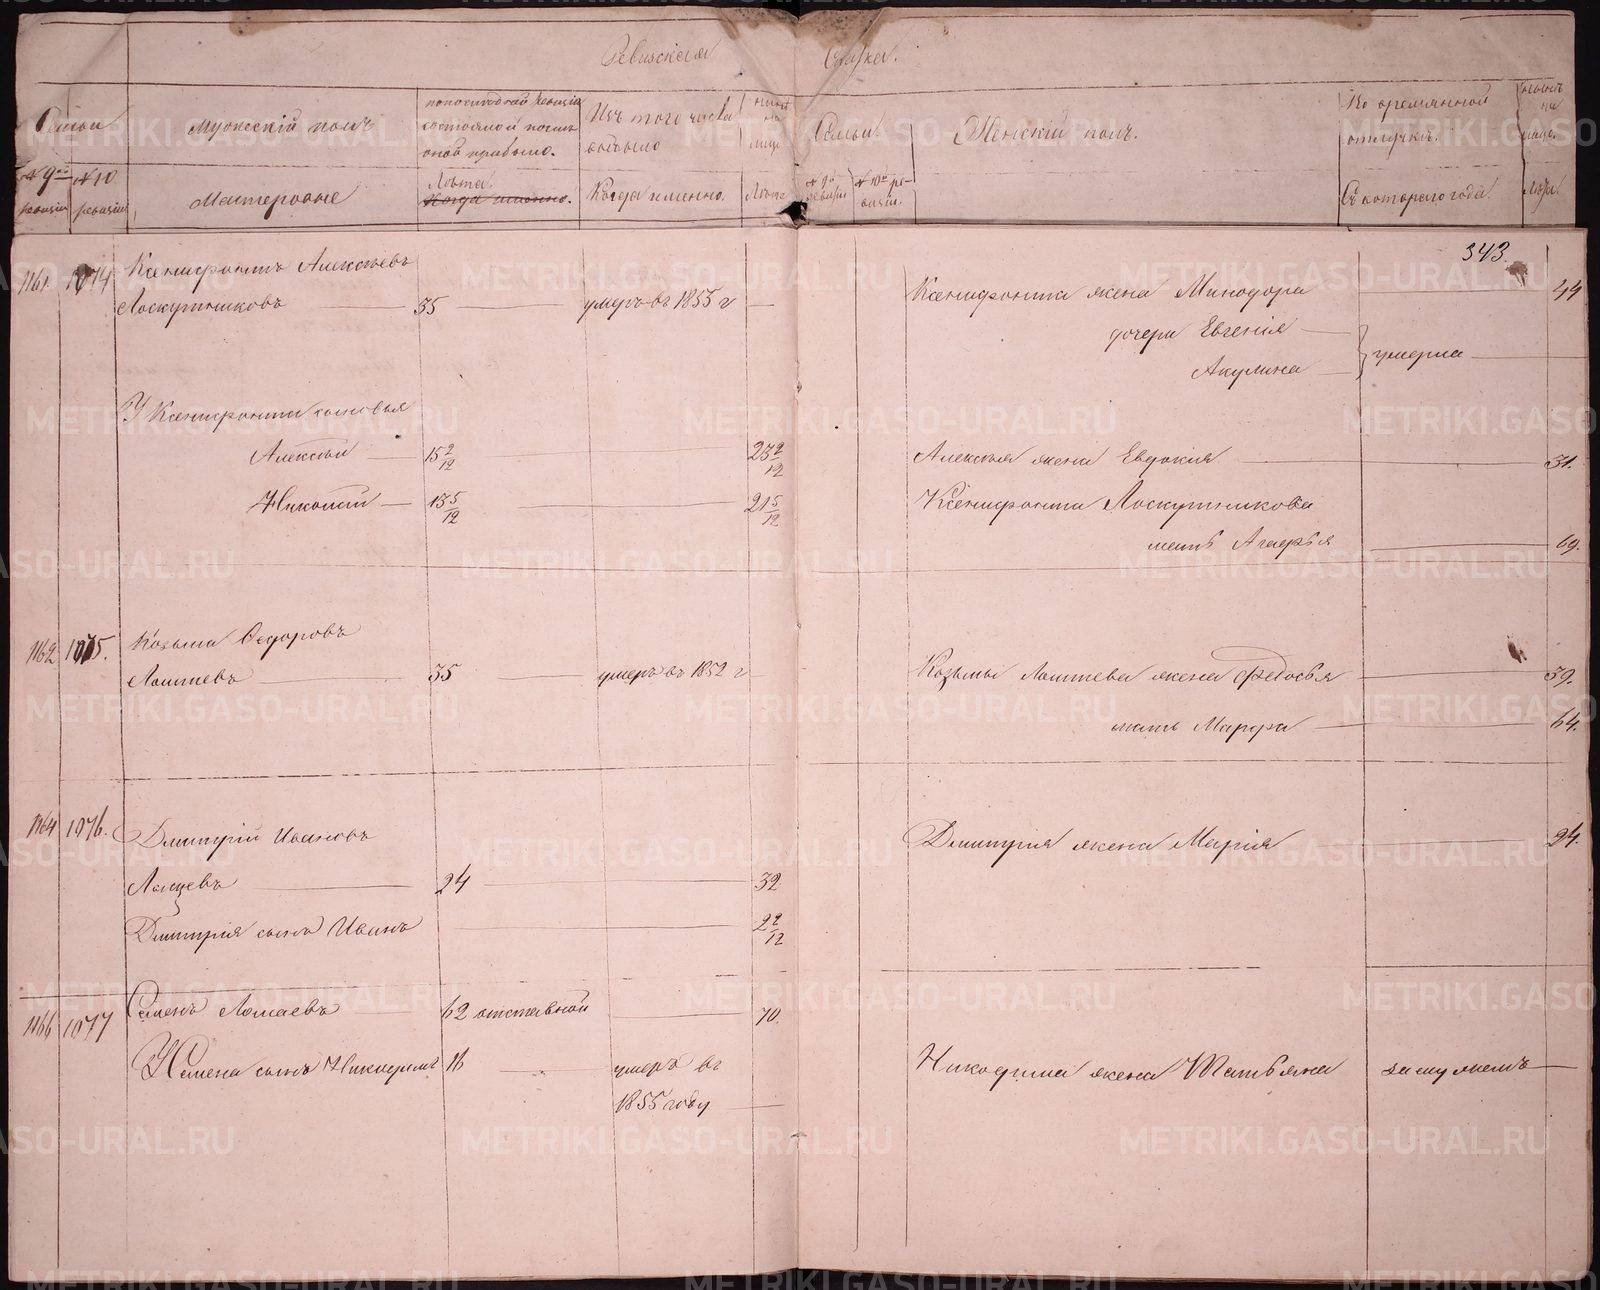 Ревизская Сказка.
Семьи
Мужеский полъ
по последней ревизии состояло и после оной прибыло.
Изъ того числа выбыло
ныне на лицо
Семьи
Женский полъ.
Во временной отлучкѣ.
ныне на лицо.
№ 9ой ревизии
№ 10 ревизии
Мастеровые
Лѣта.
Когда именно.
Когда именно.
Лѣта
№ 9й ревизии
№ 10й ревизии.
Съ котораго года.
Лѣта.
343.
1161. 1074 Ксенифонтъ Алексѣевъ
Лоскутниковъ 35 умеръ въ 1855 г
Ксенифонта жена Минодора 44
дочери Евгенія
Акулина
умерла
У Ксенифонта сыновья
Алексѣй 15 2/12 23 2/12
Алексѣя жена Евдокия 31.
Николай 13 5/12 21 5/12
Ксенифонта Лоскутникова
мать Агафья 69.
1162 1075. Козьма Федоровъ
Лаптевъ 35 умеръ въ 1852 г
Козьмы Лаптева жена Федосья 39.
мать Марфа 64.
1164 1076. Дмитрій Ивановъ
Дмитрия жена Марія 24.
24 32
Дмитрія сынъ Иванъ 2 2/12
1166 1077 Семенъ Ломаевъ 62 отставной 70.
У Семена сынъ Никодимъ 16 умеръ въ
1855 году
Никодима жена Татьяна замужемъ
METRIKI.GASO-URAL.RU